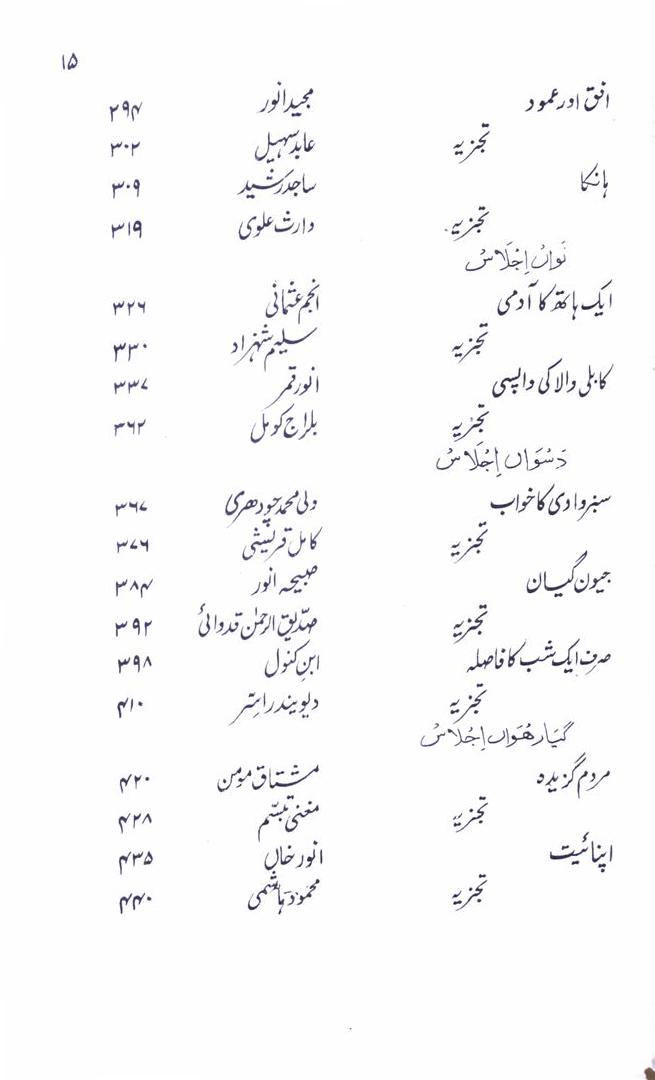 ۱۵
افق اور عمود مجید انور ۲۹۴
تجزیہ عابد سہیل ۳۰۲
ہانکا ساجد رشید ۳۰۹
تجزیہ وارث علوی ۳۱۹
نواں اجلاس
ایک ہاتھ کا آدمی انجم عثمانی ۳۲۶
تجزیہ سلیم شہزاد ۳۳۰
کابلی والا کی واپسی انور قمر ۳۳۷
تجزیہ بلراج کومل ۳۶۲
دسواں اجلاس
سبز وادی کا خواب ولی محمد چودھری ۳۶۷
تجزیہ کامل قریشی ۳۷۶
جیون گیان صبیحہ انور ۳۸۴
تجزیہ صدیق الرحمٰن قدوائی ۳۹۲
صرف ایک شب کا فاصلہ ابن کنول ۳۹۸
تجزیہ دیویندر اسّر ۴۱۰
گیارھواں اجلاس
مردم گزیدہ مشتاق مومن ۴۲۰
تجزیہ مغنی تبسّم ۴۲۸
اپنائیت انور خاں ۴۳۵
تجزیہ محمود ہاشمی ۴۴۰